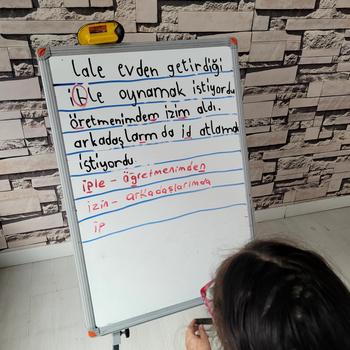 lale evden getirdiği
iple oynamak istiyordu
öretmenimdem izim aldı.
arkadaşlarım da id atlamak
istiyordu
iple - ögretmenimden
izin - arkadaşlarımda
ip